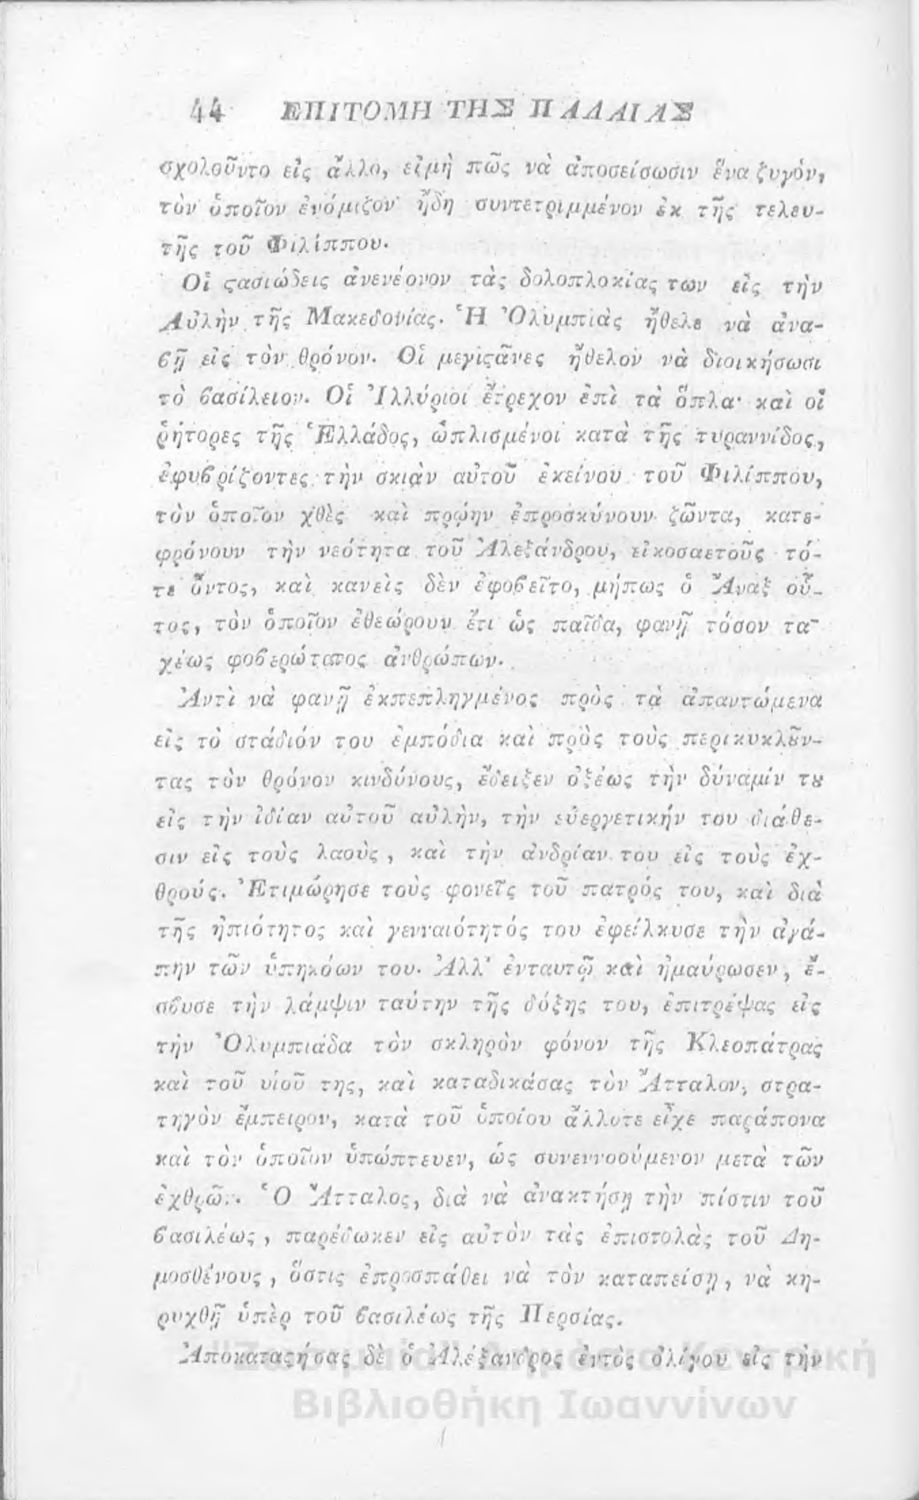 44 ΕΠΙΤΟΜΗ ΤΗΣ ΠΑΛΑΙΑΣ
σχολοῦντο εἰς ἄλλο, εἰμὴ πῶς νὰ ἀποσείσωσιν ἕνα ζυγὸν,
τὸν ὁποῖον ἐνόμιζον ἤδη συντετριμμένον ἐκ τῆς τελευ-
τῆς τοῦ Φιλίππου.
Οἱ ϛασιώδεις ἀνενέονον τὰς δολοπλοκίας των εἰς τὴν
Αὐλὴν τῆς Μακεδονίας. Ἡ Ὀλυμπιὰς ἤθελε νὰ ἀνα-
ϐῇ εἰς τὸν θρόνον. Οἱ μεγιϛᾶνες ἤθελον νὰ διοικήσωσι
τὸ ϐασίλειον. Οἱ Ἰλλύριοι ἔτρεχον ἐπὶ τὰ ὅπλα· καὶ οἱ
ῥήτορες τῆς Ἑλλάδος, ὡπλισμένοι κατὰ τῆς τυραννίδος,
ἐφυϐρίζοντες τὴν σκιὰν αὐτοῦ ἐκείνου τοῦ Φιλίππου,
τὸν ὁποῖον χθὲς καὶ πρώην ἐπροσκύνουν ζῶντα, κατε-
φρόνουν τὴν νεότητα τοῦ Ἀλεξάνδρου, εἰκοσαετοῦς τό-
τε ὄντος, καὶ κανεὶς δὲν ἐφοϐεῖτο, μήπως ὁ Ἄναξ οὗ-
τος, τὸν ὁποῖον ἐθεώρουν ἔτι ὡς παῖδα, φανῇ τόσον τα-
χέως φοϐερώτατος ἀνθρώπων.
Ἀντὶ νὰ φανῇ ἐκπεπληγμένος πρὸς τὰ ἀπαντώμενα
εἰς τὸ στάδιόν του ἐμπόδια καὶ πρὸς τοὺς περικυκλȣν-
τας τὸν θρόνον κινδύνους, ἔδειξεν ὀξέως τὴν δύναμίν τȣ
εἰς τὴν ἰδίαν αὐτοῦ αὐλὴν, τὴν εὐεργετικήν του διάθε-
σιν εἰς τοὺς λαοὺς, καὶ τὴν ἀνδρίαν του εἰς τοὺς ἐχ-
θρούς. Ἐτιμώρησε τοὺς φονεῖς τοῦ πατρός του, καὶ διὰ
τῆς ἠπιότητος καὶ γενναιότητός του ἐφείλκυσε τὴν ἀγά-
πην τῶν ὑπηκόων του. Ἀλλ' ἐνταυτῷ καὶ ἠμαύρωσεν, ἔ-
σϐυσε τὴν λάμψιν ταύτην τῆς δόξης του, ἐπιτρέψας εἰς
τὴν Ὀλυμπιάδα τὸν σκληρὸν φόνον τῆς Κλεοπάτρας
καὶ τοῦ υἱοῦ της, καὶ καταδικάσας τὸν Ἄτταλον, στρα-
τηγὸν ἔμπειρον, κατὰ τοῦ ὁποίου ἄλλοτε εἶχε παράπονα
καὶ τὸν ὁποῖον ὑπώπτευεν, ὡς συνεννοούμενον μετὰ τῶν
ἐχθρῶν. Ὁ Ἄτταλος, διὰ νὰ ἀνακτήσῃ τὴν πίστιν τοῦ
ϐασιλέως, παρέδωκεν εἰς αὐτὸν τὰς ἐπιστολὰς τοῦ Δη-
μοσθένους, ὅστις ἐπροσπάθει νὰ τὸν καταπείσῃ, νὰ κη-
ρυχθῇ ὑπὲρ τοῦ ϐασιλέως τῆς Περσίας.
Ἀποκαταϛήσας δὲ ὁ Ἀλέξανδρος ἐντὸς ὀλίγου εἰς τὴν
Ζωσιμαία Δημόσια Κεντρική
Βιβλιοθήκη Ιωαννίνων